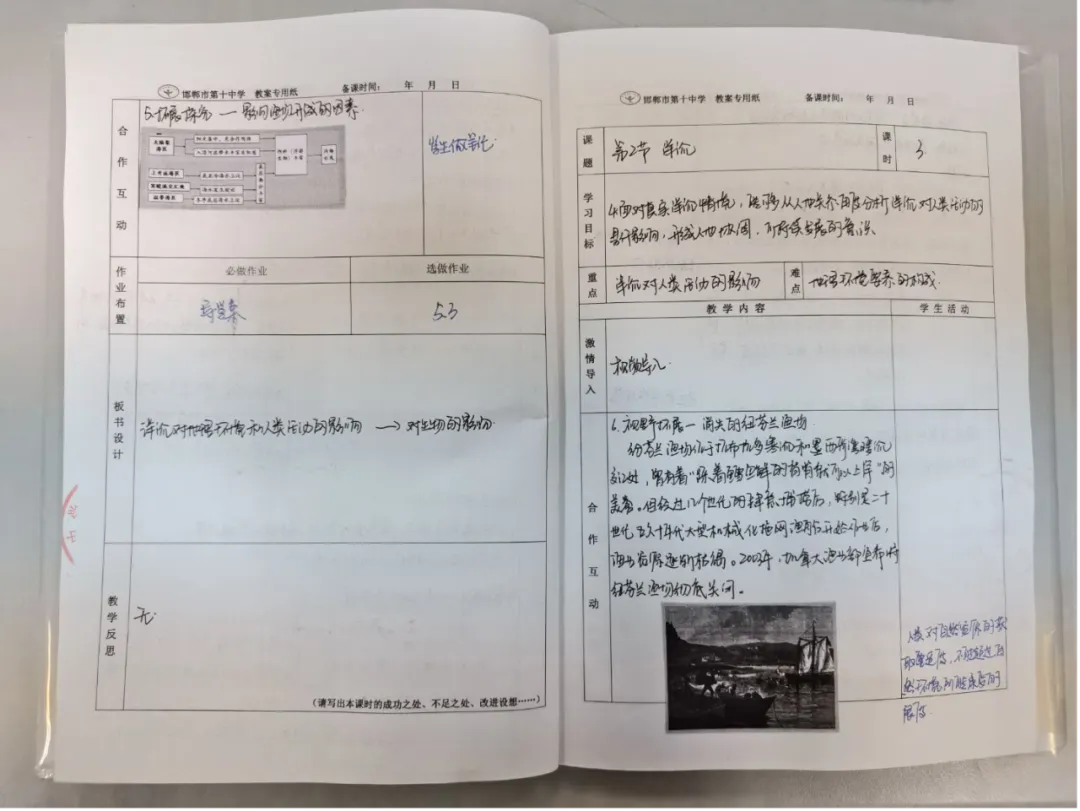 邯郸市第十中学 教案专用纸 备课时间： 年 月 日
合作互动
5.拓展探究 — 影响渔场形成的因素.
学生做笔记.
作业布置
必做作业
选做作业
导学案
5.3
板书设计
洋流对地理环境和人类活动的影响 → 对生物的影响.
教学反思
无.
（请写出本课时的成功之处、不足之处、改进设想……）
邯郸市第十中学 教案专用纸 备课时间： 年 月 日
课题
第2节 洋流
课时
3
学习目标
4.面对真实洋流情境，能够从人地关系角度分析洋流对人类活动的
影响，形成人地协调，可持续发展的意识.
重点
洋流对人类活动的影响
难点
地理环境要素的构成.
教学内容
学生活动
激情导入
视频导入.
合作互动
6.视野拓展 — 消失的纽芬兰渔场
纽芬兰渔场位于拉布拉多寒流和墨西哥湾暖流
交汇处，曾有着“踩着鳕鱼群的脊背就可以上岸”的
美誉。但经过几个世纪的肆意捕捞后，特别是二十
世纪五六十年代大型机械化拖网渔船开始作业后，
渔业资源逐渐枯竭。2003年，加拿大渔业部宣布将
纽芬兰渔场彻底关闭。
人类对自然资源的获
取要适度，不能超过自
然环境所能承受的
限度.